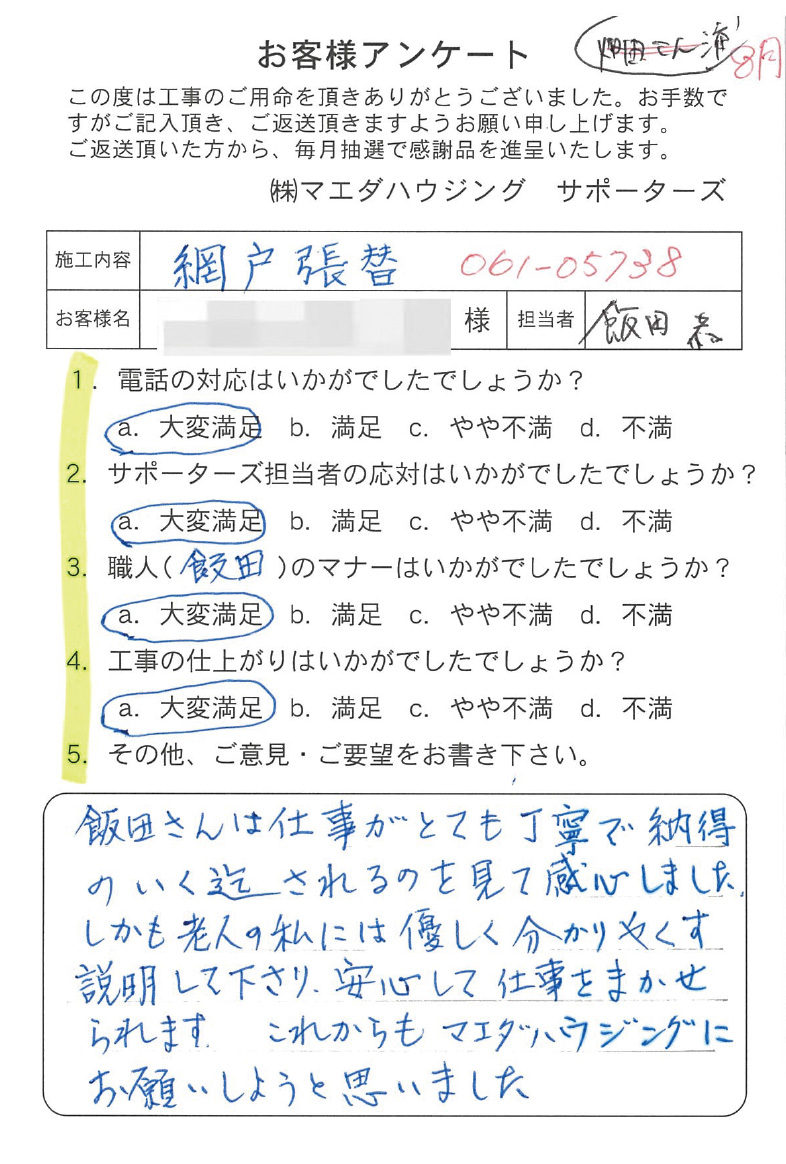 お客様アンケート
飯田さん 済
8月
この度は工事のご用命を頂きありがとうございました。お手数で
すがご記入頂き、ご返送頂きますようお願い申し上げます。
ご返送頂いた方から、毎月抽選で感謝品を進呈いたします。
㈱マエダハウジング サポーターズ
施工内容 網戸張替 061-05738
お客様名 様 担当者 飯田
1. 電話の対応はいかがでしたでしょうか？
a. 大変満足 b. 満足 c. やや不満 d. 不満
2. サポーターズ担当者の応対はいかがでしたでしょうか？
a. 大変満足 b. 満足 c. やや不満 d. 不満
3. 職人(飯田)のマナーはいかがでしたでしょうか？
a. 大変満足 b. 満足 c. やや不満 d. 不満
4. 工事の仕上がりはいかがでしたでしょうか？
a. 大変満足 b. 満足 c. やや不満 d. 不満
5. その他、ご意見・ご要望をお書き下さい。
飯田さんは仕事がとても丁寧で納得
のいく迄されるのを見て感心しました。
しかも老人の私には優しく分かりやくす
説明して下さり、安心して仕事をまかせ
られます これからもマエダハウジングに
お願いしようと思いました